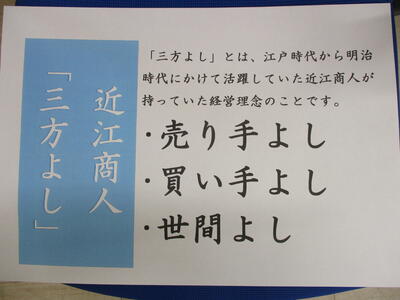 近江商人
「三方よし」
「三方よし」とは、江戸時代から明治
時代にかけて活躍していた近江商人が
持っていた経営理念のことです。
・売り手よし
・買い手よし
・世間よし